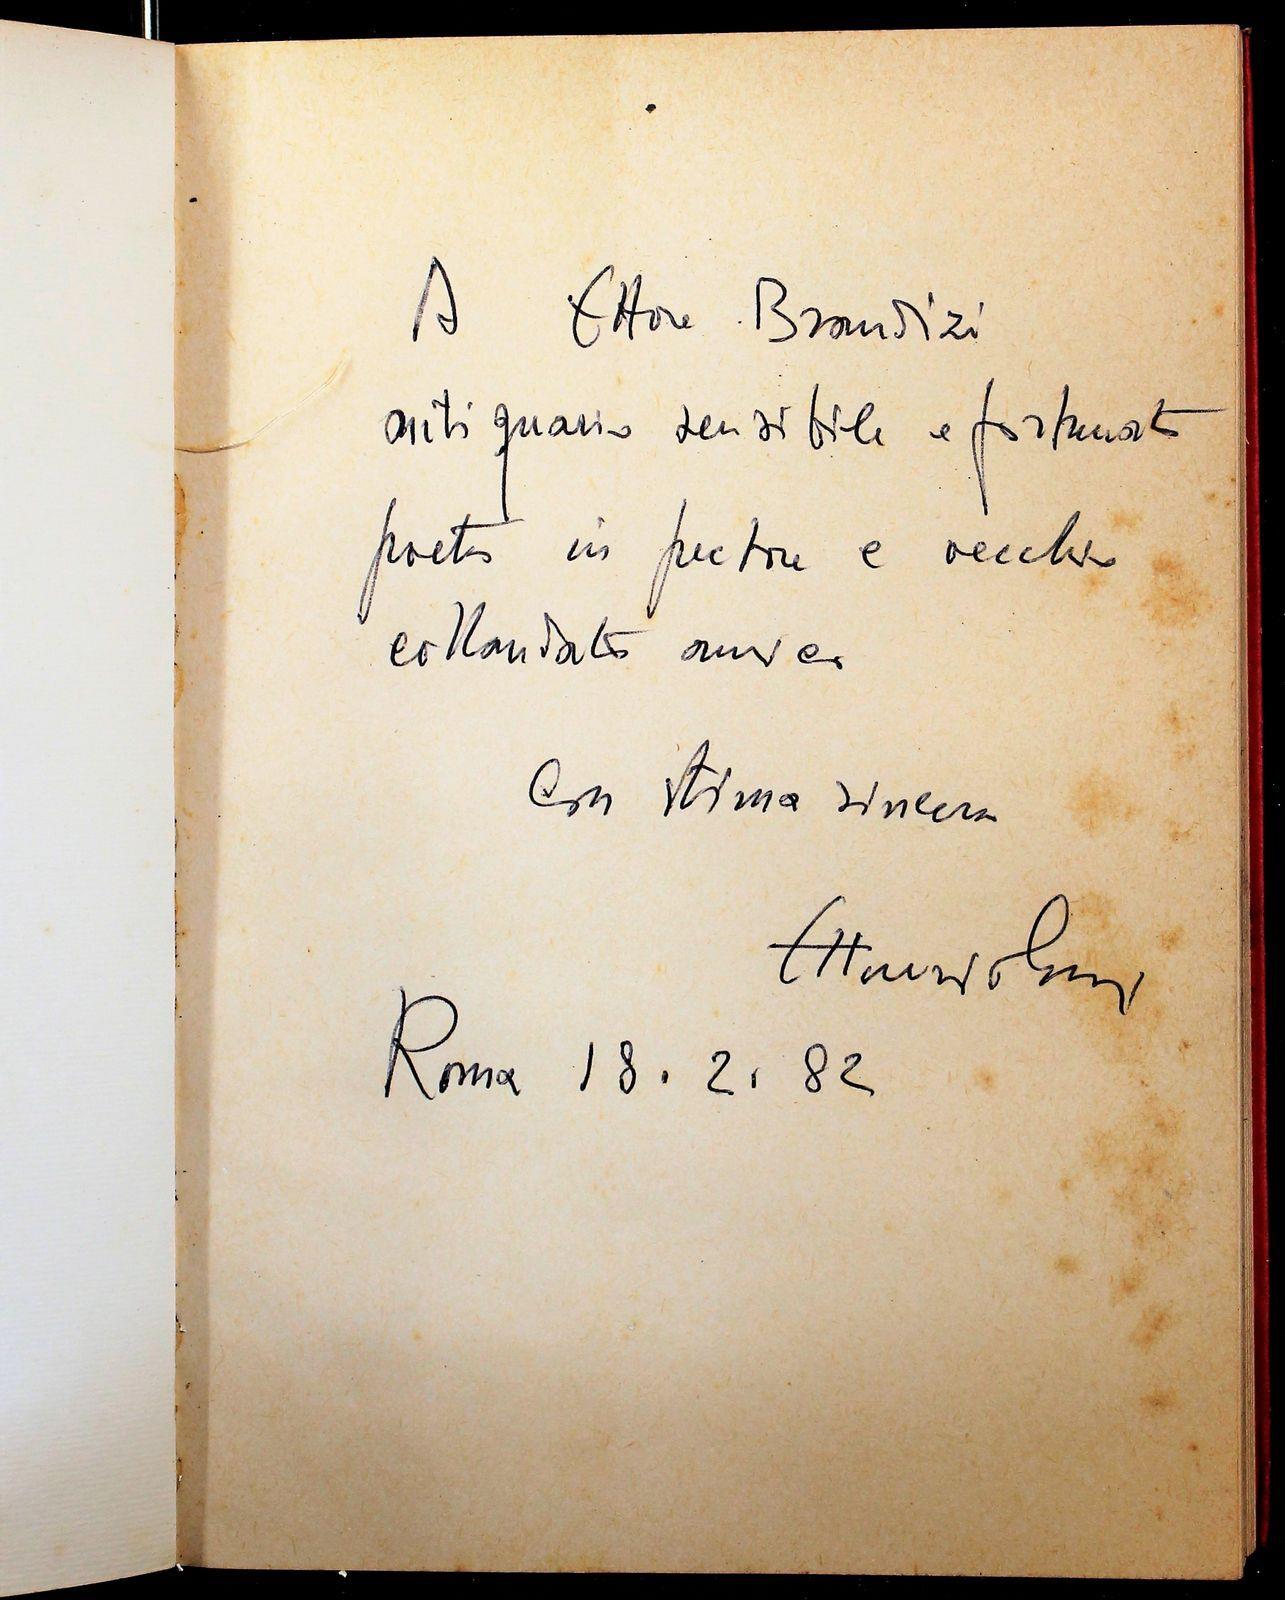 A Ettore Brandizi
antiquario sensibile e fortunato
poeta in pectore e vecchio
collaudato amico
Con stima sincera
Roma 18.2.82